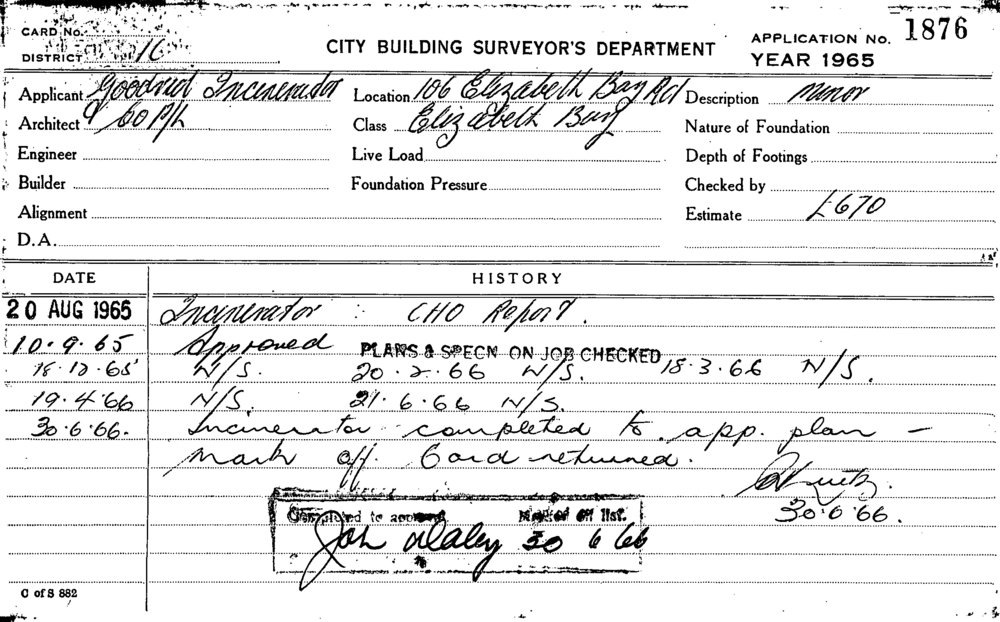 CARD No.
CITY BUILDING SURVEYOR'S DEPARTMENT
APPLICATION No. 1876
DISTRICT 16
YEAR 1965
Applicant Incinerator Location 106 Elizabeth Bay Rd Description Minor
Architect Co P/L Class Elizabeth Bay Nature of Foundation
Engineer Live Load Depth of Footings
Builder Foundation Pressure Checked by
Alignment Estimate £670
D.A.
DATE HISTORY
20 AUG 1965 Incinerator : CHO Report.
10.9.65 Approved PLANS & SPECN ON JOB CHECKED
18.12.65 N/S. 20.2.66 N/S. 18.3.66 N/S.
19.4.66 N/S. 21.6.66 N/S.
30.6.66. Incinerator completed to app. plan –
mark off. Card returned.
30.6.66.
Completed to approval Marked off list.
30 6 66
C of S 882